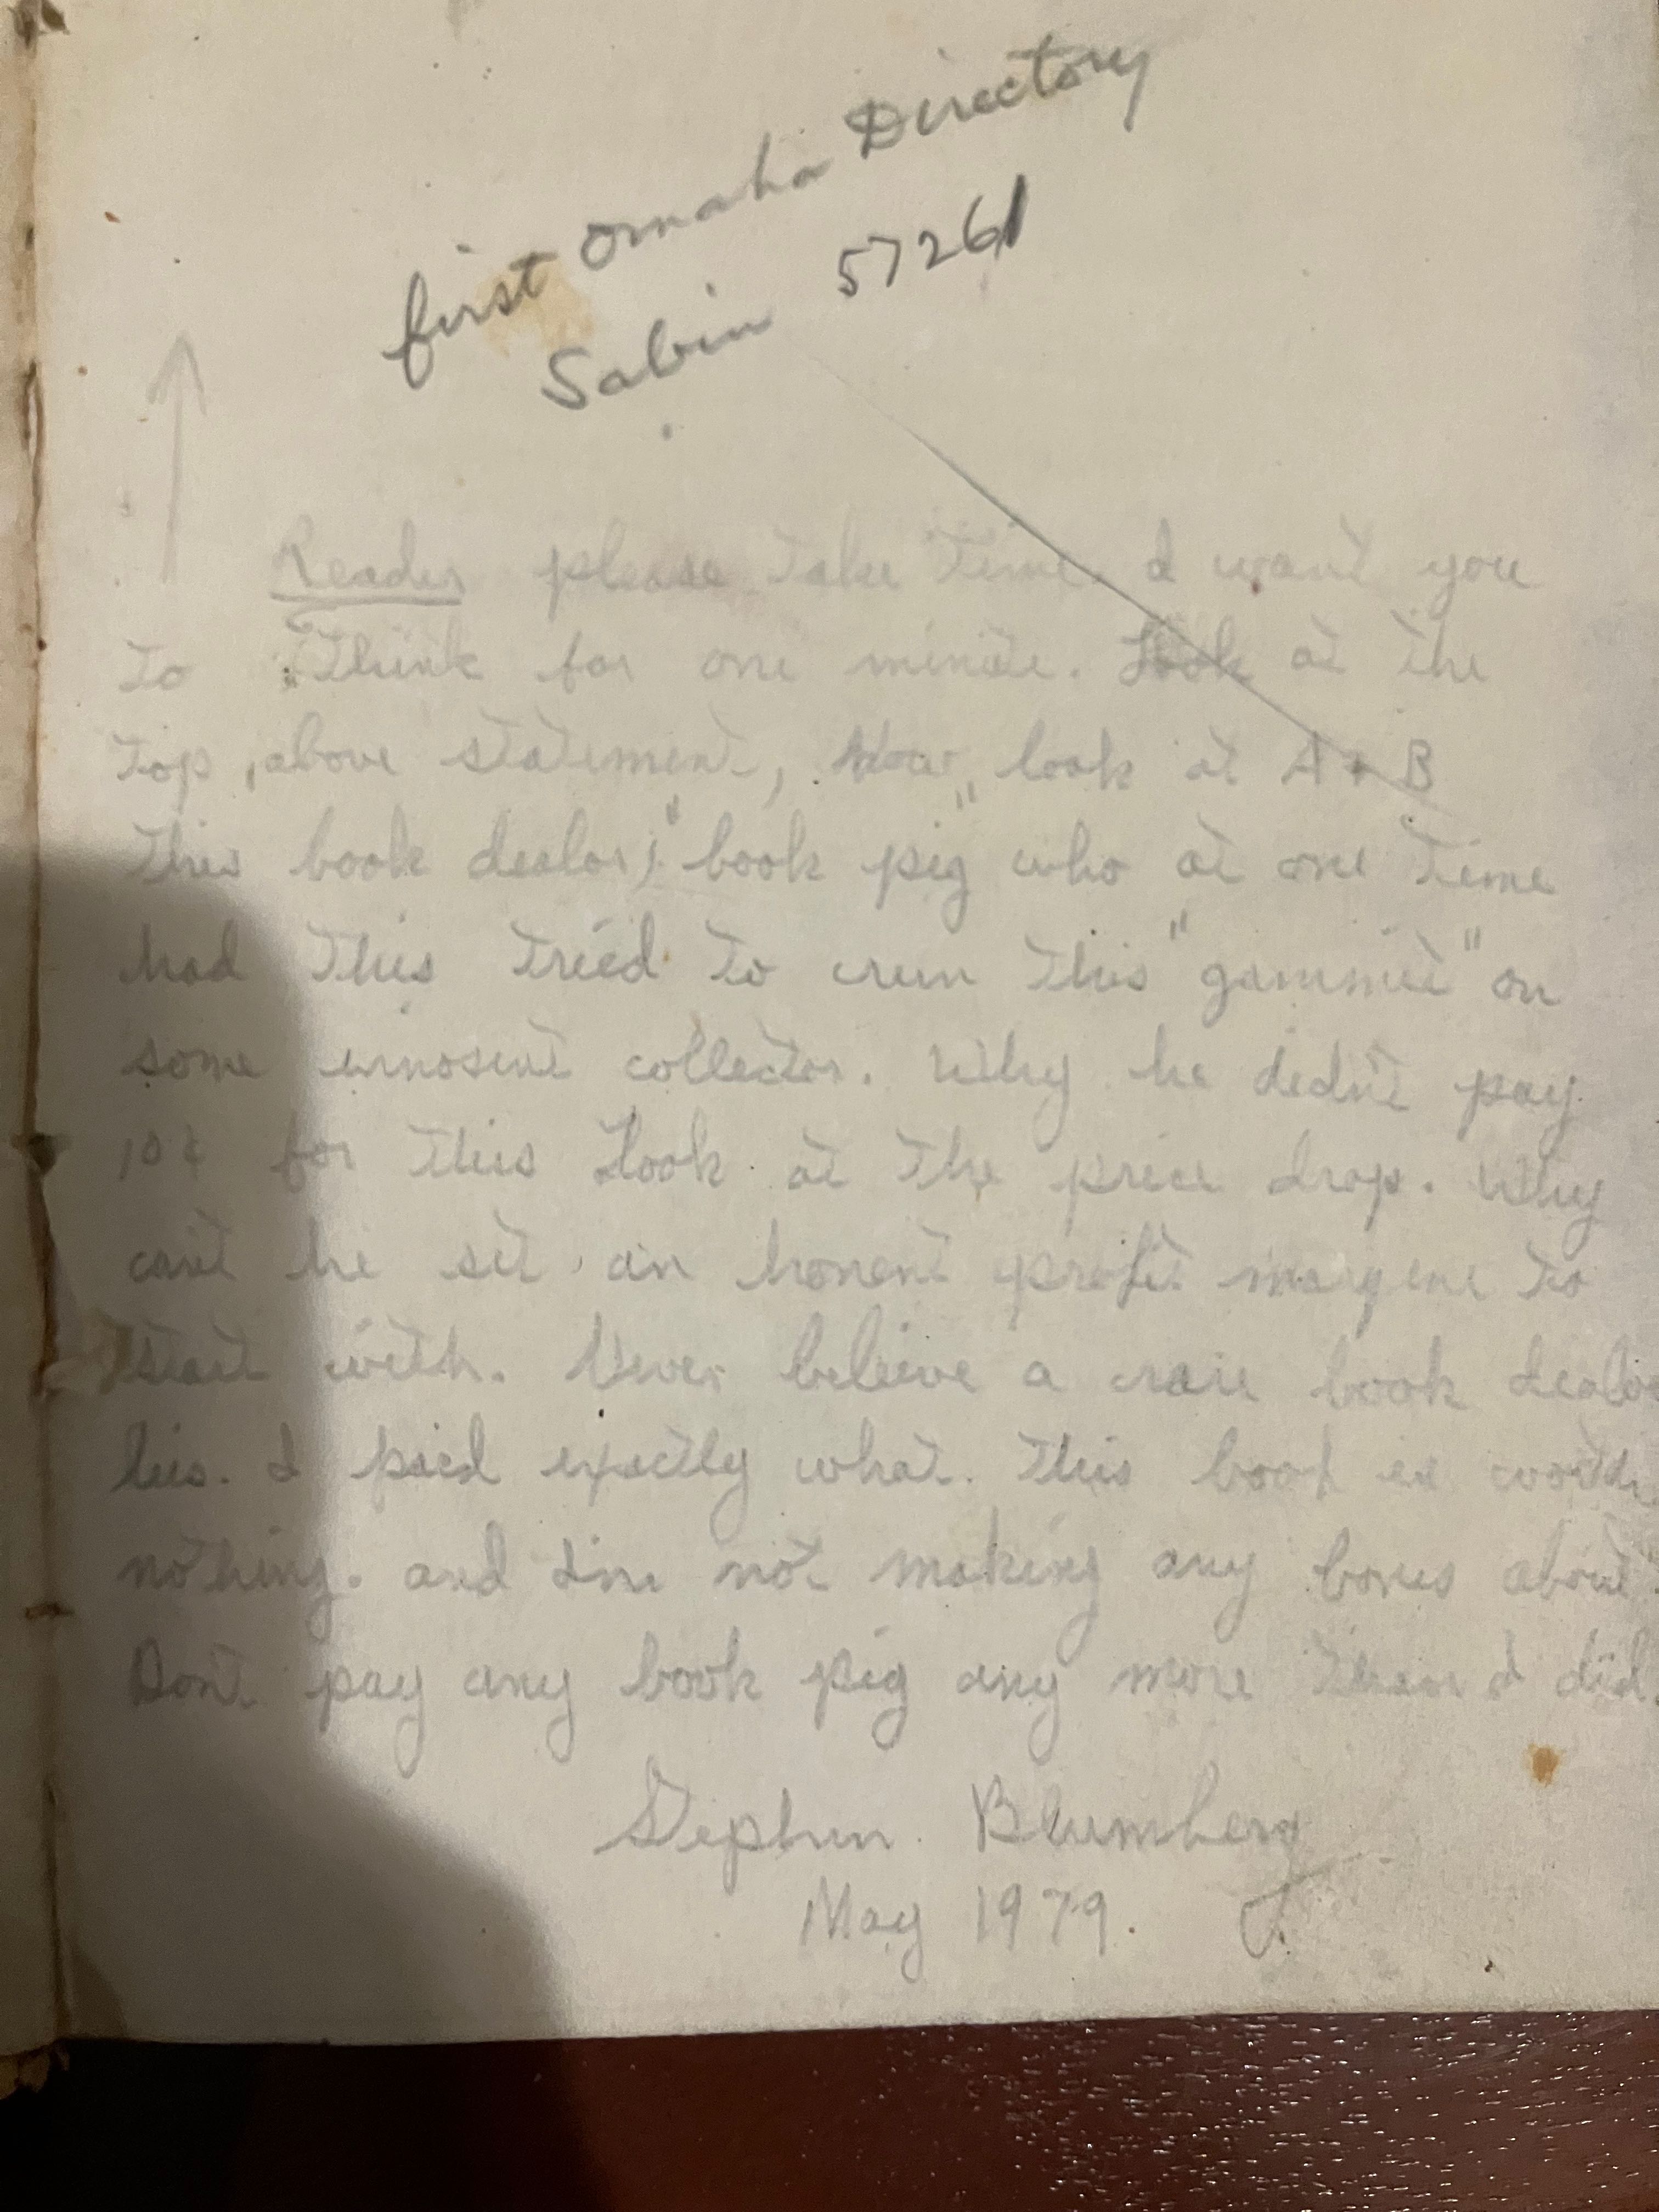 first Omaha Directory
Sabin 57261
Reader please take time, I want you
to think for one minute. Look at the
top, above statement, Now look at A + B
This book dealor, "book pig" who at one time
had this tried to run this "gammit" on
some innosent collector. Why he didn't pay
10¢ for this Look at the price drop. Why
cant he set an honent profit margene to
start with. Never believe a rare book dealor
lies. I paid exactly what this book is worth
nothing. and Im not making any bones about
Dont pay any book pig any more than I did.
Stephen Blumberg
May 1979.